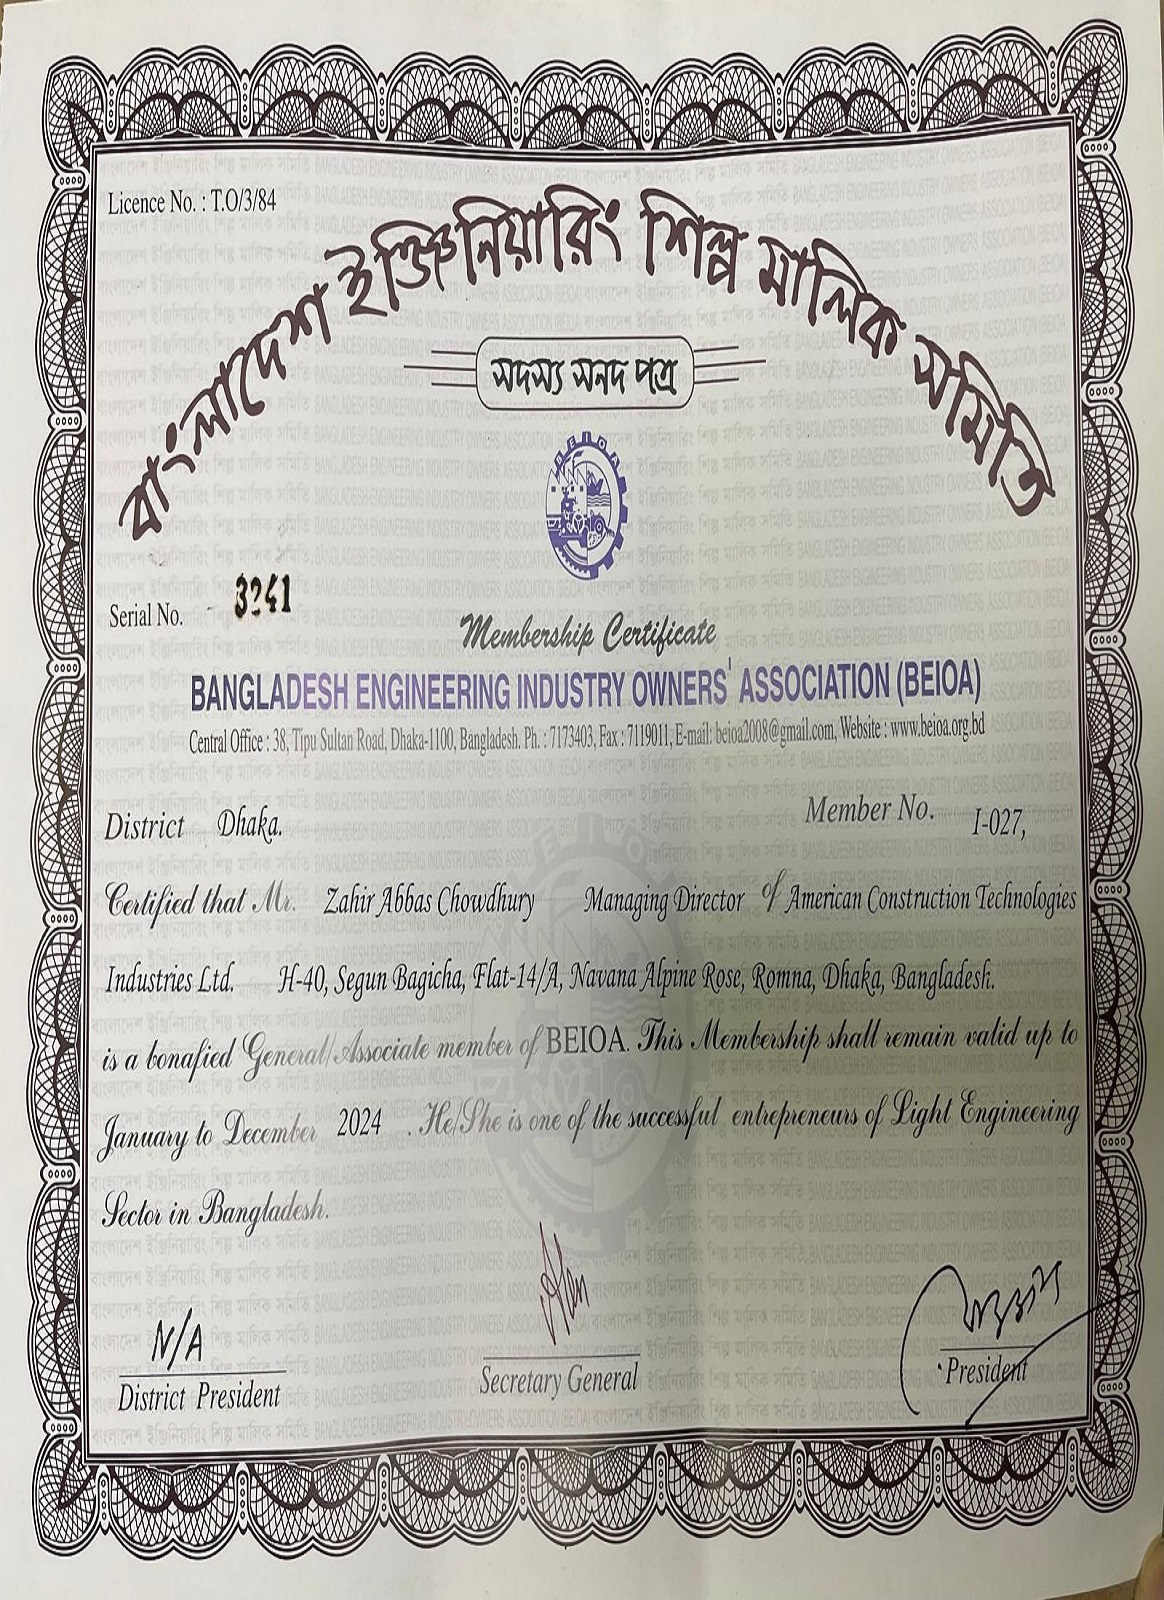 Licence No. : T.O/3/84
বাংলাদেশ ইঞ্জিনিয়ারিং শিল্প মালিক সমিতি
সদস্য সনদ পত্র
BEIOA
Serial No. - 3241
Membership Certificate
BANGLADESH ENGINEERING INDUSTRY OWNERS' ASSOCIATION (BEIOA)
Central Office : 38, Tipu Sultan Road, Dhaka-1100, Bangladesh. Ph. : 7173403, Fax : 7119011, E-mail: beioa2008@gmail.com, Website : www.beioa.org.bd
District Dhaka. Member No. I-027,
Certified that Mr. Zahir Abbas Chowdhury Managing Director of American Construction Technologies
Industries Ltd. H-40, Segun Bagicha, Flat-14/A, Navana Alpine Rose, Romna, Dhaka, Bangladesh.
is a bonafied General/Associate member of BEIOA. This Membership shall remain valid up to
January to December 2024 . He/She is one of the successful entrepreneurs of Light Engineering
Sector in Bangladesh.
N/A
District President Secretary General President